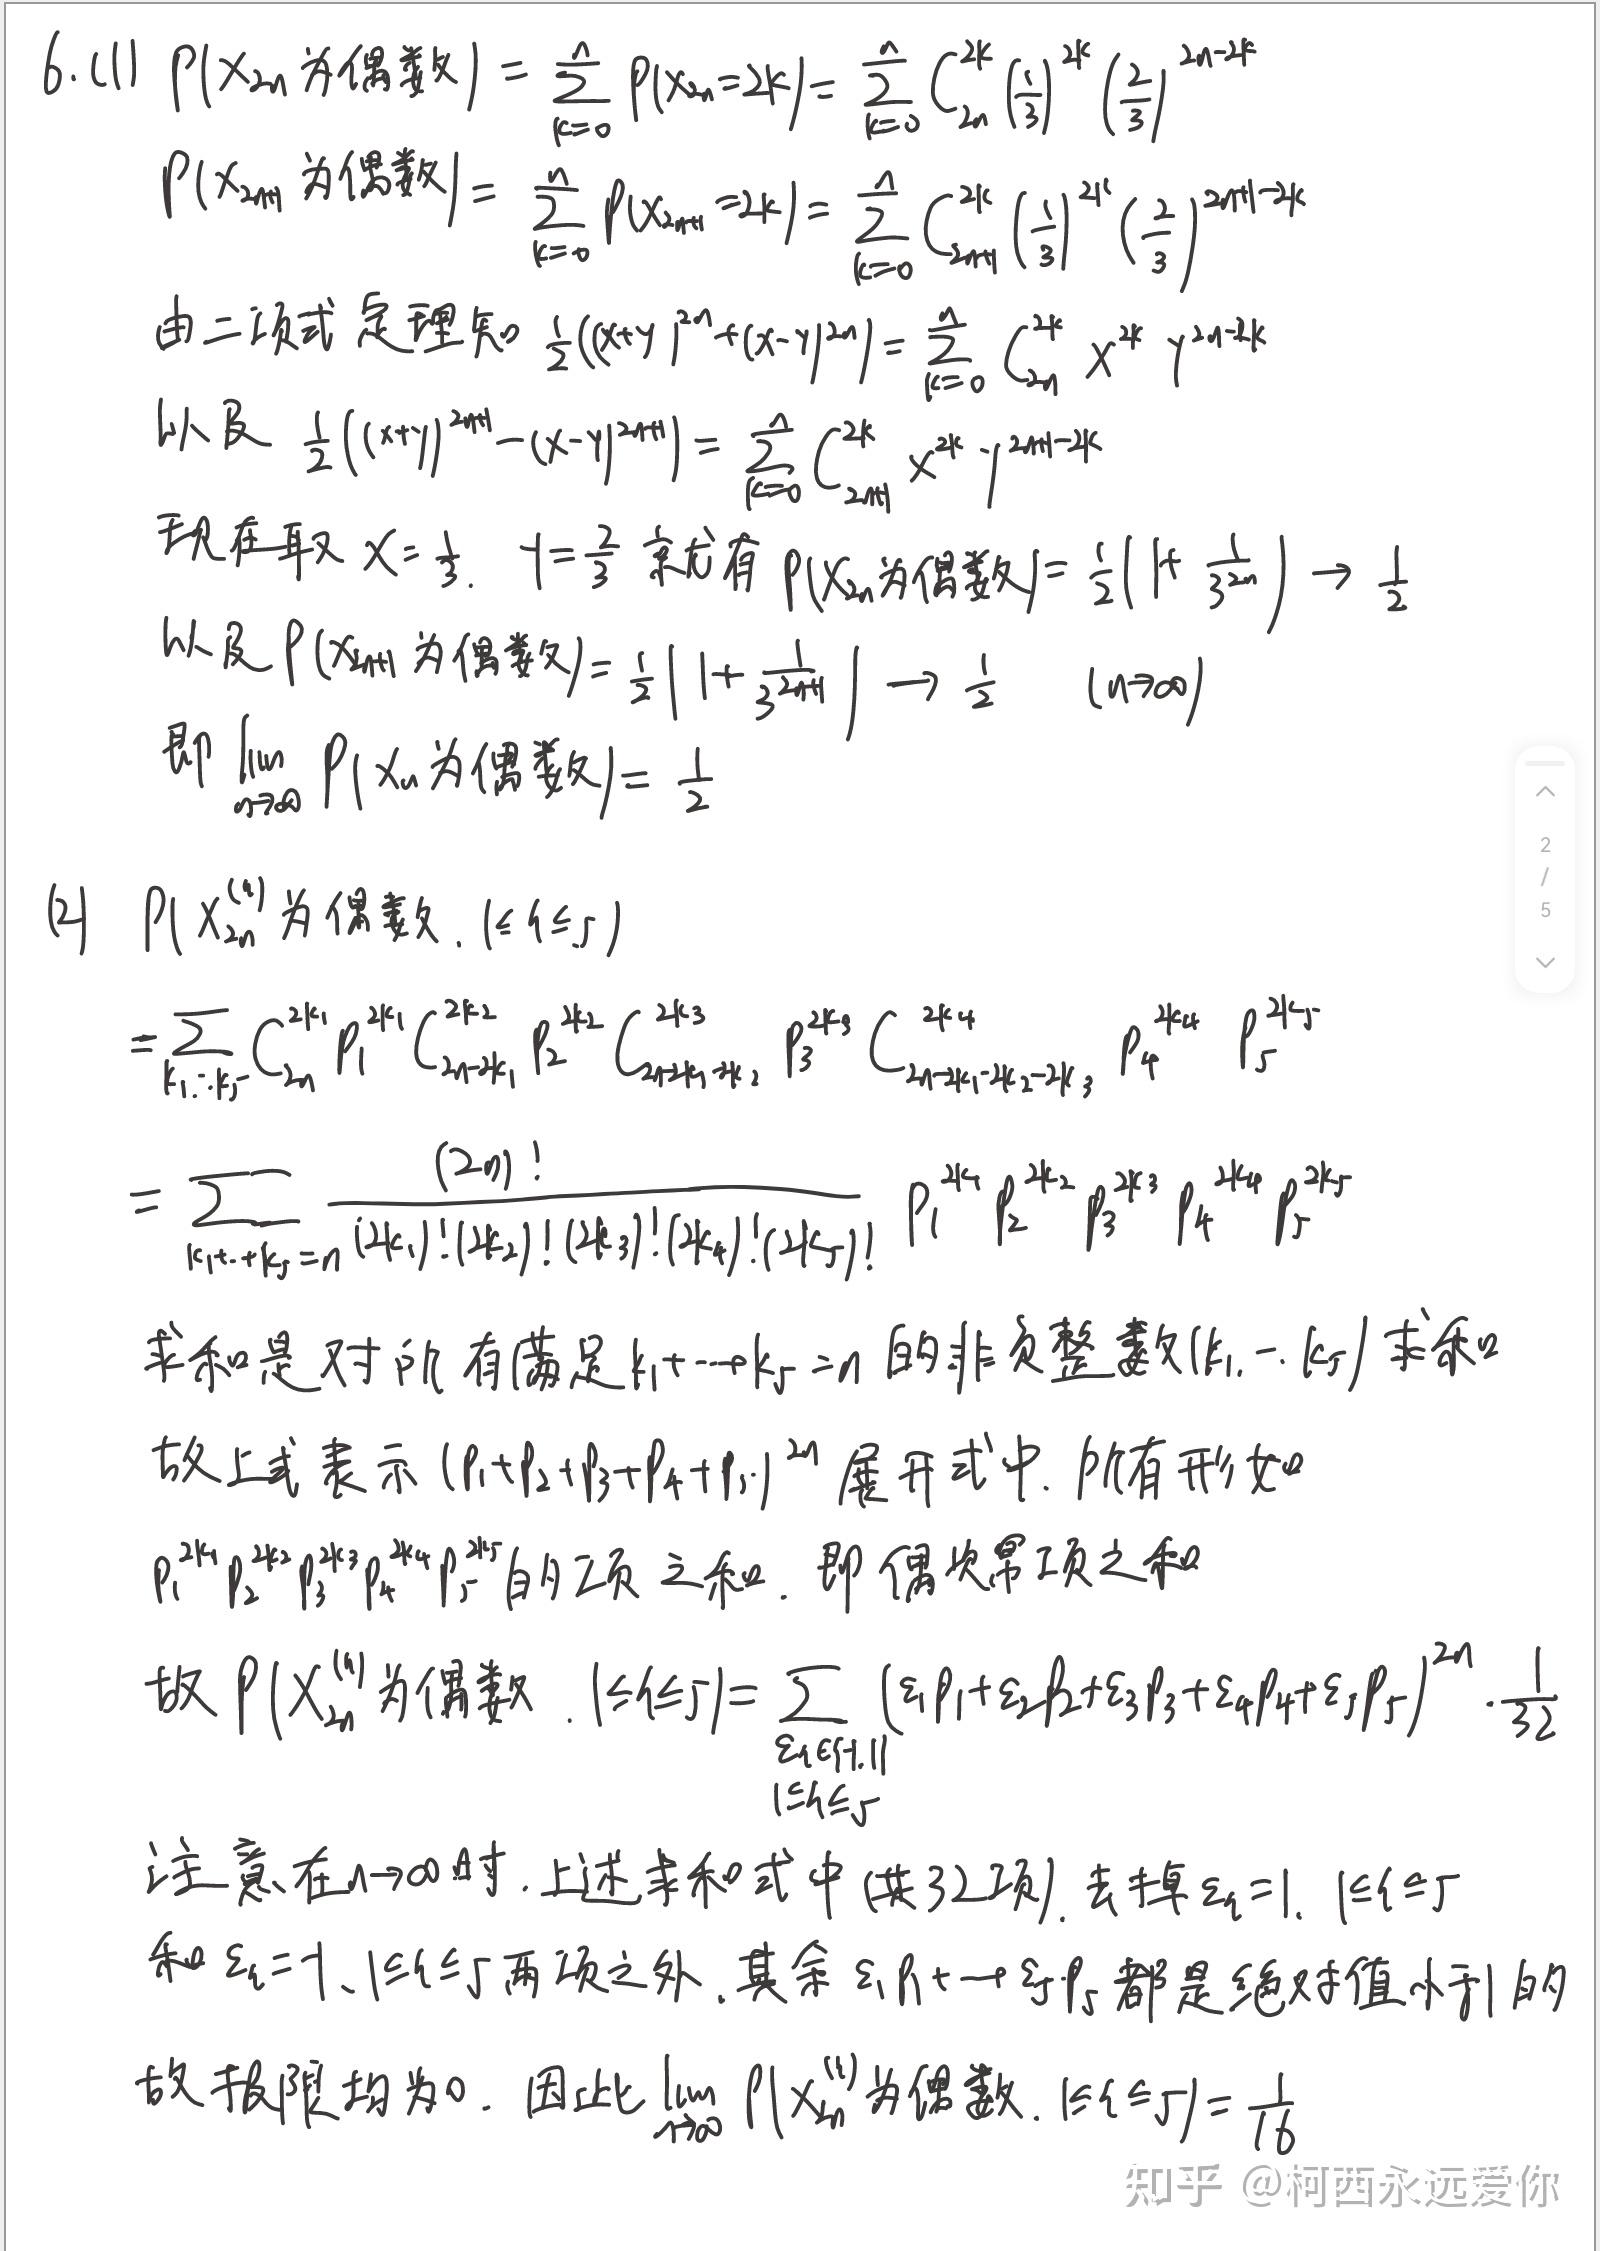 6.(1) P(X_{2n}为偶数) = \sum_{k=0}^{n} P(X_{2n}=2k) = \sum_{k=0}^{n} C_{2n}^{2k} (\frac{1}{3})^{2k} (\frac{2}{3})^{2n-2k}
P(X_{2n+1}为偶数) = \sum_{k=0}^{n} P(X_{2n+1}=2k) = \sum_{k=0}^{n} C_{2n+1}^{2k} (\frac{1}{3})^{2k} (\frac{2}{3})^{2n+1-2k}
由二项式定理知 \frac{1}{2}((x+y)^{2n}+(x-y)^{2n}) = \sum_{k=0}^{n} C_{2n}^{2k} x^{2k} y^{2n-2k}
以及 \frac{1}{2}((x+y)^{2n+1}-(x-y)^{2n+1}) = \sum_{k=0}^{n} C_{2n+1}^{2k} x^{2k} y^{2n+1-2k}
现在取 x=\frac{1}{3}. y=\frac{2}{3} 就有 P(X_{2n}为偶数) = \frac{1}{2}(1+\frac{1}{3^{2n}}) → \frac{1}{2}
以及 P(X_{2n+1}为偶数) = \frac{1}{2}(1+\frac{1}{3^{2n+1}}) → \frac{1}{2} (n→∞)
即 \lim_{n→∞} P(X_n为偶数) = \frac{1}{2}
(2) P(X_{2n}^{(i)}为偶数. 1≤i≤5)
= \sum_{k_1...k_5} C_{2n}^{2k_1} P_1^{2k_1} C_{2n-2k_1}^{2k_2} P_2^{2k_2} C_{2n-2k_1-2k_2}^{2k_3} P_3^{2k_3} C_{2n-2k_1-2k_2-2k_3}^{2k_4} P_4^{2k_4} P_5^{2k_5}
= \sum_{k_1+...+k_5=n} \frac{(2n)!}{(2k_1)!(2k_2)!(2k_3)!(2k_4)!(2k_5)!} P_1^{2k_1} P_2^{2k_2} P_3^{2k_3} P_4^{2k_4} P_5^{2k_5}
求和是对所有满足k_1+...+k_5=n的非负整数(k_1...k_5)求和
故上式表示(P_1+P_2+P_3+P_4+P_5)^{2n}展开式中.所有形如
P_1^{2k_1} P_2^{2k_2} P_3^{2k_3} P_4^{2k_4} P_5^{2k_5}的项之和.即偶次幂项之和
故 P(X_{2n}^{(i)}为偶数.1≤i≤5) = \sum_{ε_i∈{-1,1} 1≤i≤5} (ε_1P_1+ε_2P_2+ε_3P_3+ε_4P_4+ε_5P_5)^{2n}·\frac{1}{32}
注意在n→∞时.上述求和式中(共32项).去掉ε_i=1.1≤i≤5
和ε_i=-1、1≤i≤5两项之外.其余ε_1P_1+...+ε_5P_5都是绝对值小于1的
故极限均为0.因此\lim_{n→∞} P(X_{2n}^{(i)}为偶数.1≤i≤5) = \frac{1}{16}
2
/
5
知乎 @柯西永远爱你